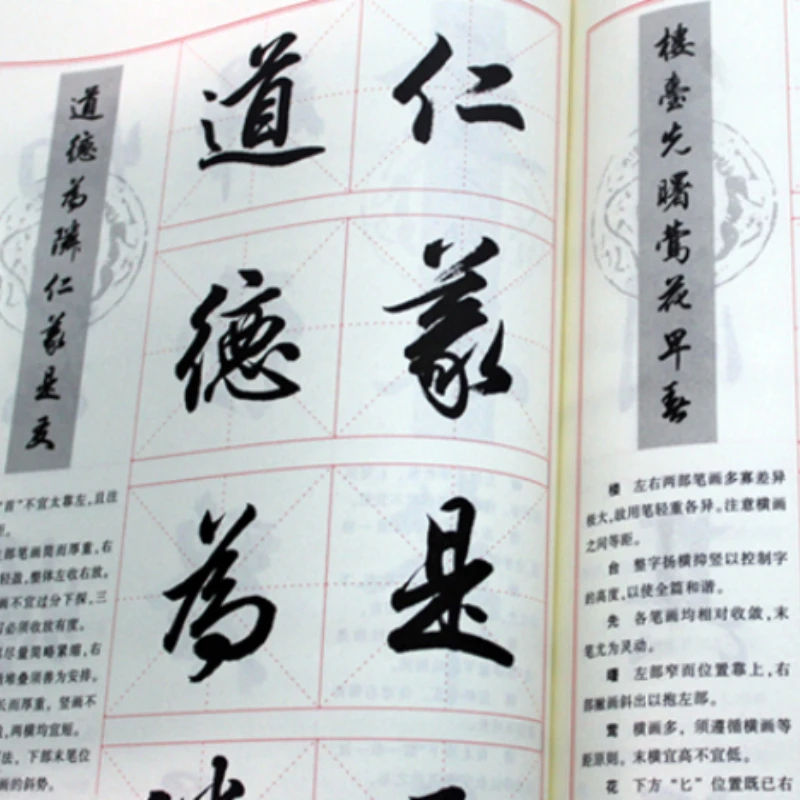 道德为隣仁義是友
道 仁
德 義
為 是
楼臺先曙莺花早春
"首"不宜太靠左,且注
距。
左部笔画简而厚重,右
轻盈,整体左收右放。
画不宜过分下探,三
必须收放有度。
尽量简略紧缩,右
堆叠须善为安排。
长而厚重,竖画不
,两横均宜短。
法,下部末笔位
画的斜势。
楼 左右两部笔画多寡差异
极大,故用笔轻重各异。注意横画
之间等距。
台 整字扬横抑竖以控制字
的高度,以使全篇和谐。
先 各笔画均相对收敛,末
笔尤为灵动。
曙 左部窄而位置靠上,右
部撇画斜出以抱左部。
莺 横画多,须遵循横画等
距原则。末横宜高不宜低。
花 下方"匕"位置既已右